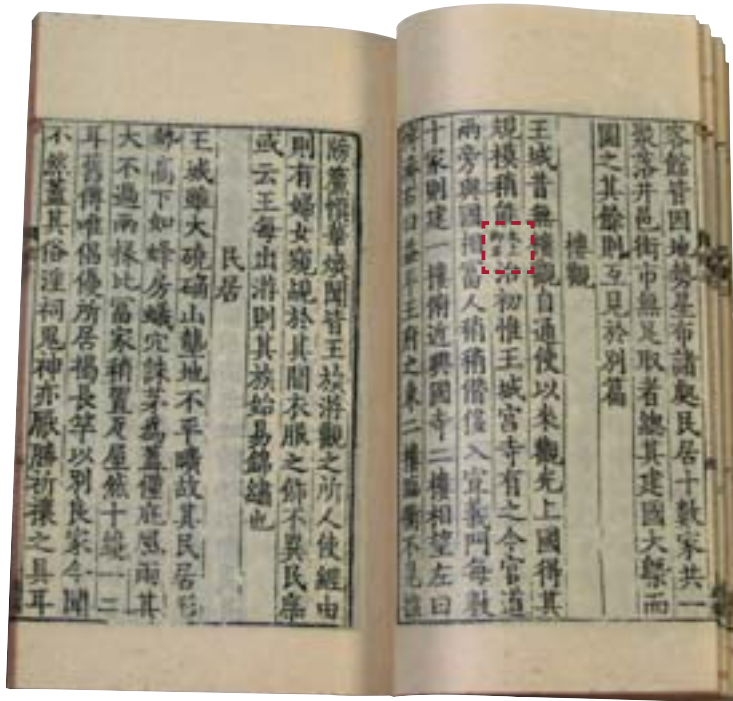 客館皆因地勢星布諸處民居十數家共一
聚落井邑街市無足取者總其建國大槩而
圖之其餘則互見於別篇
樓觀
王城昔無樓觀自通使以來觀光上國得其
規模稍能治初惟王城宮寺有之今官道
兩旁與國相富人稍稍僭侈入宣義門每數
十家則建一樓俯近興國寺二樓相望左曰
右曰益平王府之東二樓臨衢不見標
牓簾幙華煥聞皆王族游觀之所人使經由
則有婦女窺覘於其間衣服之飾不異民庶
或云王每出游則其族始易錦繡也
民居
王城雖大磽确山壟地不平曠故其民居形
勢高下如蜂房蟻穴誅茅為蓋僅庇風雨其
大不過兩椽比富家稍置瓦屋然十纔一二
耳舊傳唯倡優所居揭長竿以別良家今聞
不然蓋其俗淫祠鬼神亦厭勝祈禳之具耳